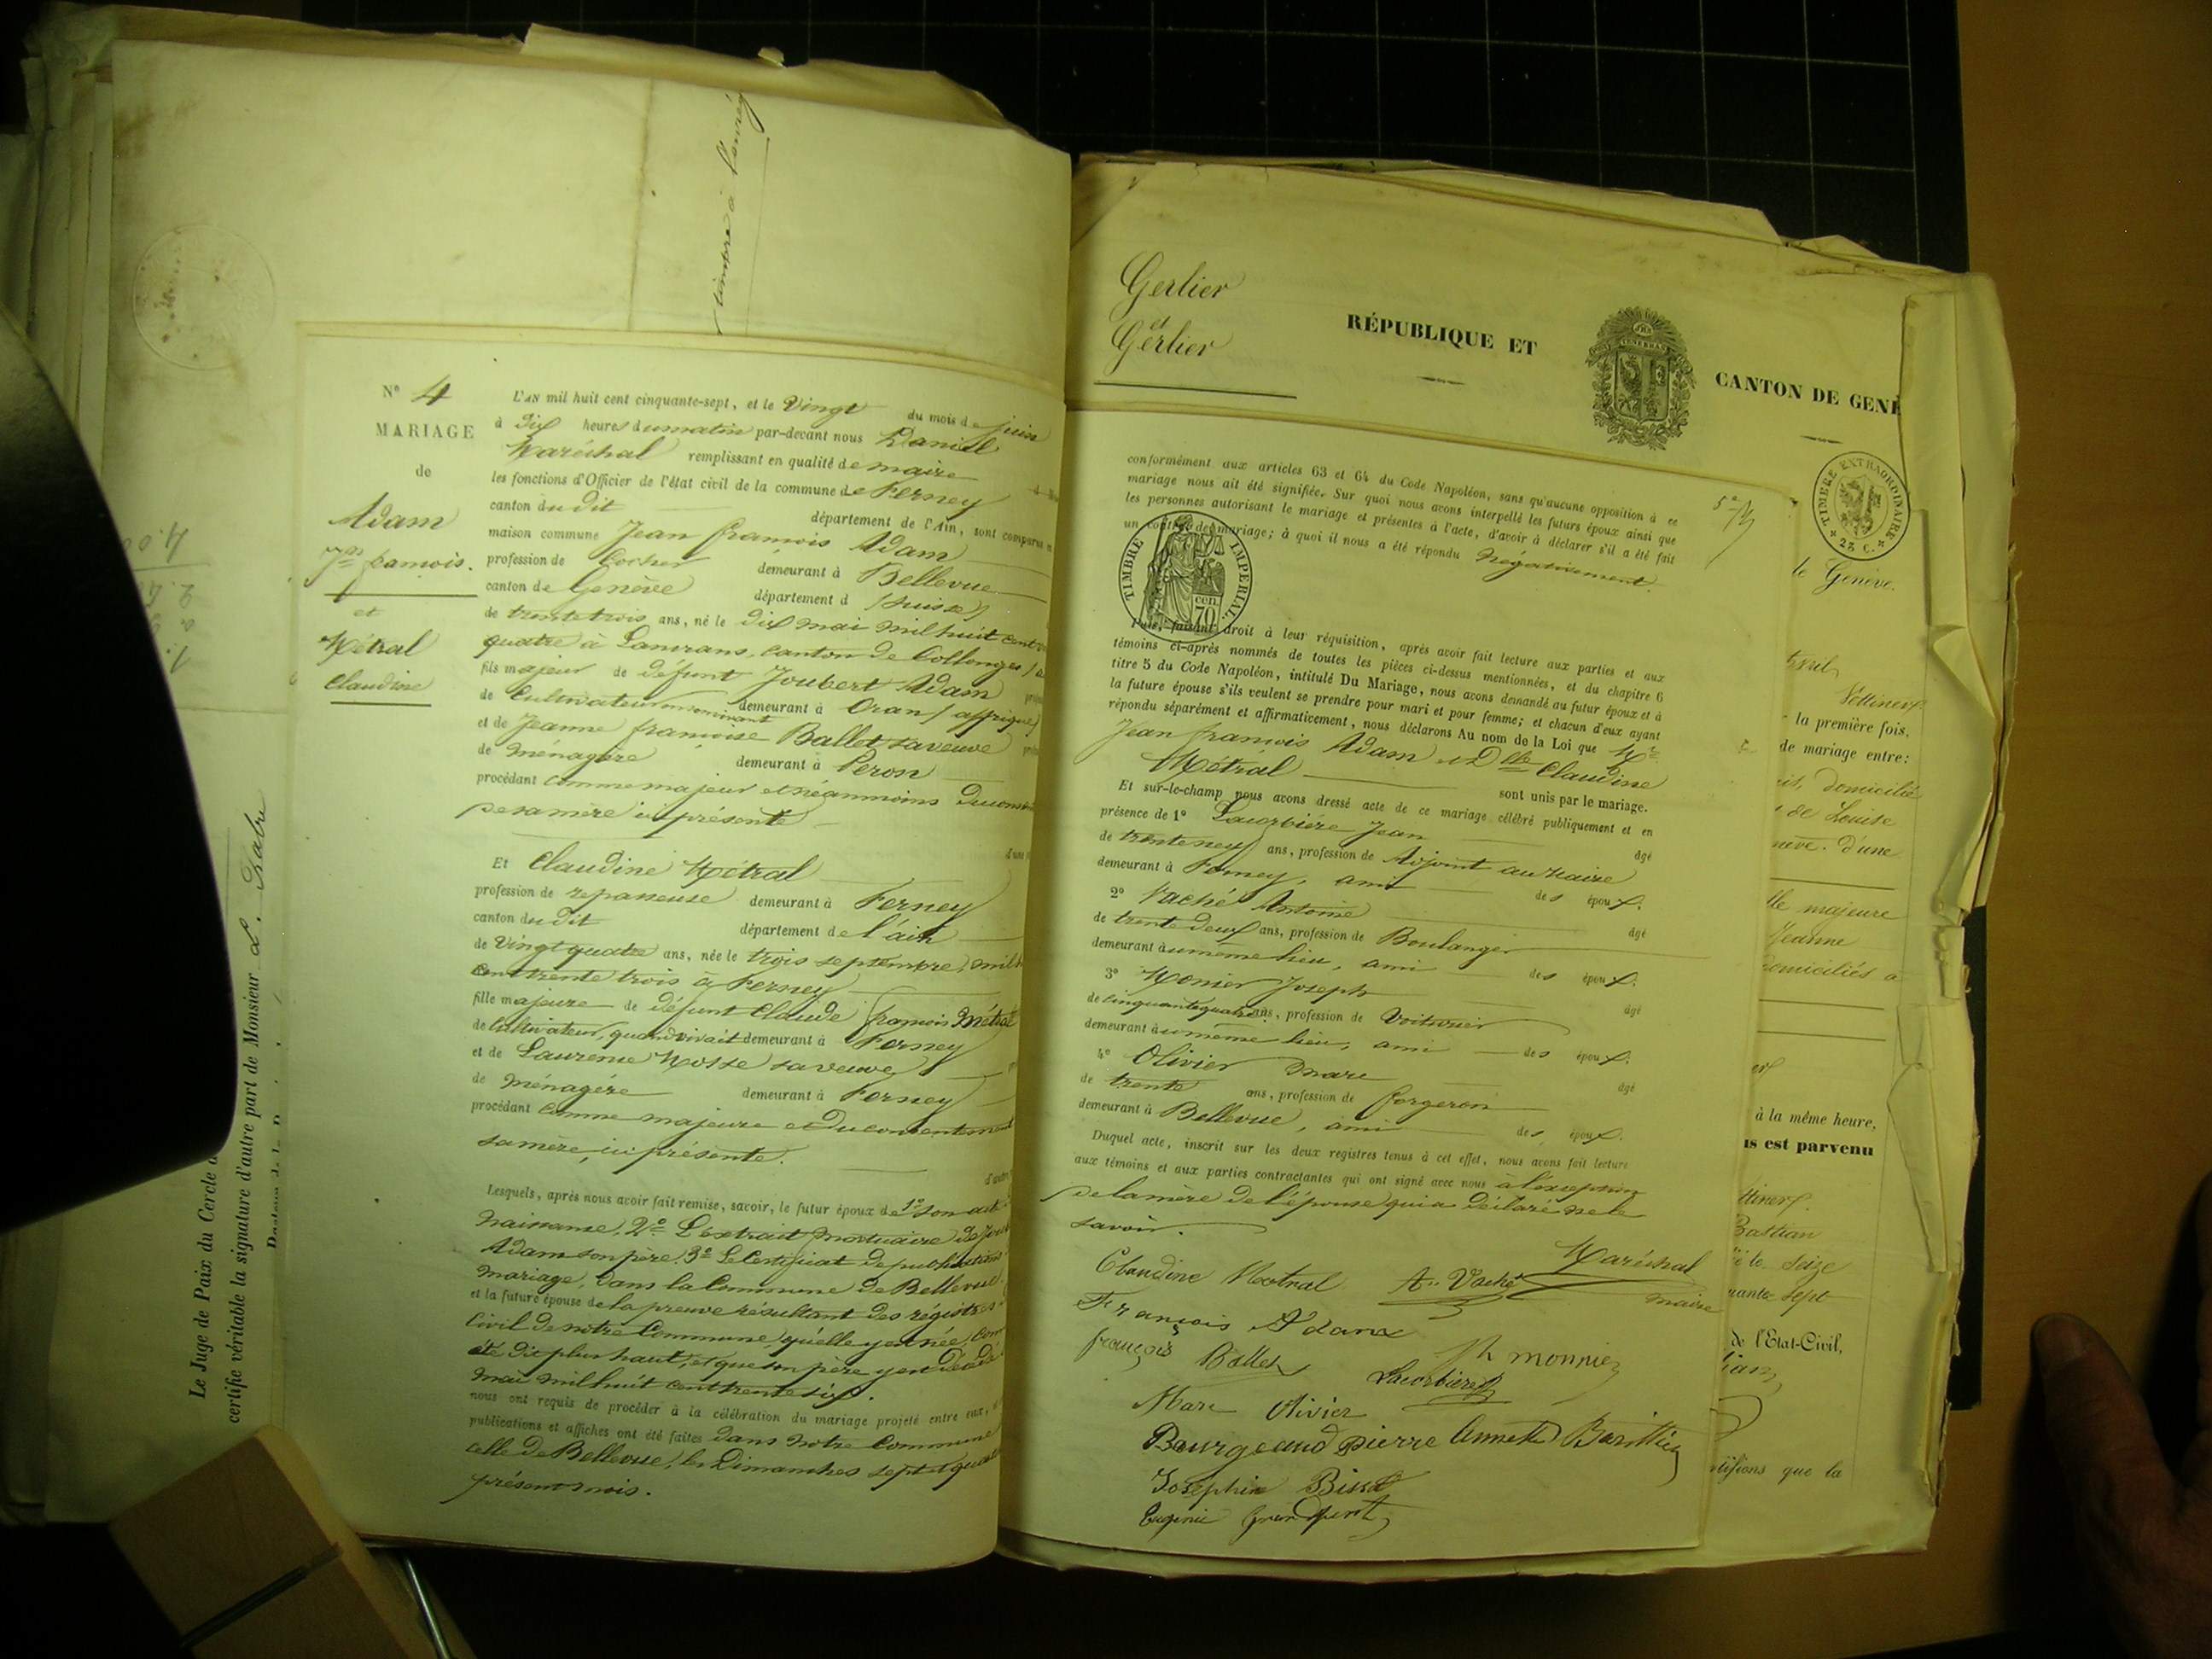 timbre à
Le Juge de Paix du Cercle d
certifie véritable la signature d'autre part de Monsieur L.
N° 4
MARIAGE
de
Adam
Jn françois.
et
Métral
Claudine
L'AN mil huit cent cinquante-sept, et le Vingt du mois de juin
à dix heures du matin par-devant nous Daniel
Maréchal remplissant en qualité de maire
les fonctions d'Officier de l'état civil de la commune de Ferney
canton du dit département de l'Ain, sont comparus
maison commune Jean françois Adam
profession de Cocher demeurant à Bellevue
canton de Genève département d (Suisse)
de trente trois ans, né le dix mai mil huit cent
quatre à Lanvrans, canton de Collonges
fils majeur de défunt Joubert Adam
de Cultivateur demeurant à Oran (affrique)
et de Jeanne françoise Ballet sa veuve
de ménagère demeurant à Peron
procédant comme majeur et néanmoins du cons
de sa mère ici présente
Et Claudine Métral
profession de repasseuse demeurant à Ferney
canton du dit département de l'ain
de Vingt quatre ans, née le trois septembre mil
cent trente trois à Ferney
fille majeure de défunt Claude françois Métral
de Cultivateur, quand vivait demeurant à Ferney
et de Laurence Mosse sa veuve
de ménagère demeurant à Ferney
procédant comme majeure et du consentement
sa mère, ici présente.
Lesquels, après nous avoir fait remise, savoir, le futur époux de 1° son act
naissance, 2° L'extrait mortuaire de Jou
Adam son père. 3° Le Certificat de publications
mariage, dans la Commune de Bellevue.
et la future épouse de la preuve résultant des régistres
Civil de notre Commune, qu'elle y est née, com
été dit plus haut, et que son père y est décédé
mai mil huit cent trente six.
nous ont requis de procéder à la célébration du mariage projeté entre eux,
publications et affiches ont été faites dans notre Commune
celle de Bellevue, les Dimanches sept et quat
présent mois.
Gerlier
et
Gerlier
RÉPUBLIQUE ET
CANTON DE GENÈ
TIMBRE EXTRAORDINAIRE
25 C.
conformément aux articles 63 et 64 du Code Napoléon, sans qu'aucune opposition à ce
mariage nous ait été signifiée. Sur quoi nous avons interpellé les futurs époux ainsi que
les personnes autorisant le mariage et présentes à l'acte, d'avoir à déclarer s'il a été fait
un contrat de mariage; à quoi il nous a été répondu Négativement
TIMBRE IMPÉRIAL
cen. 70
Puis, faisant droit à leur réquisition, après avoir fait lecture aux parties et aux
témoins ci-après nommés de toutes les pièces ci-dessus mentionnées, et du chapitre 6
titre 5 du Code Napoléon, intitulé Du Mariage, nous avons demandé au futur époux et à
la future épouse s'ils veulent se prendre pour mari et pour femme; et chacun d'eux ayant
répondu séparément et affirmativement, nous déclarons Au nom de la Loi que Mr
Jean françois Adam et Dlle Claudine
Métral sont unis par le mariage.
Et sur-le-champ nous avons dressé acte de ce mariage célébré publiquement et en
présence de 1° Lacorbière Jean âgé
de trente neuf ans, profession de Adjoint au maire
demeurant à Ferney, ami des époux.
2° Vaché Antoine âgé
de trente deux ans, profession de Boulanger
demeurant au même lieu, ami des époux.
3° Monier Joseph âgé
de cinquante quatre ans, profession de Voiturier
demeurant au même lieu, ami des époux.
4° Olivier Marc âgé
de trente ans, profession de forgeron
demeurant à Bellevue, ami des époux.
Duquel acte, inscrit sur les deux registres tenus à cet effet, nous avons fait lecture
aux témoins et aux parties contractantes qui ont signé avec nous à l'exception
de la mère de l'épouse qui a déclaré ne le
savoir.
Maréchal
maire
Claudine Metral
A. Vaché
François Adam
françois Ballet
Jh monnier
Lacorbière
Marc Olivier
Bourgeaud pierre
Josephin
Eugenie
le Genève.
Avril
la première fois,
de mariage entre:
domicilié
de Louise
nève. d'une
lle majeure
Jeanne
domiciliés à
à la même heure,
us est parvenu
Bastian
le Seize
uante Sept
de l'Etat-Civil,
tian
tifions que la